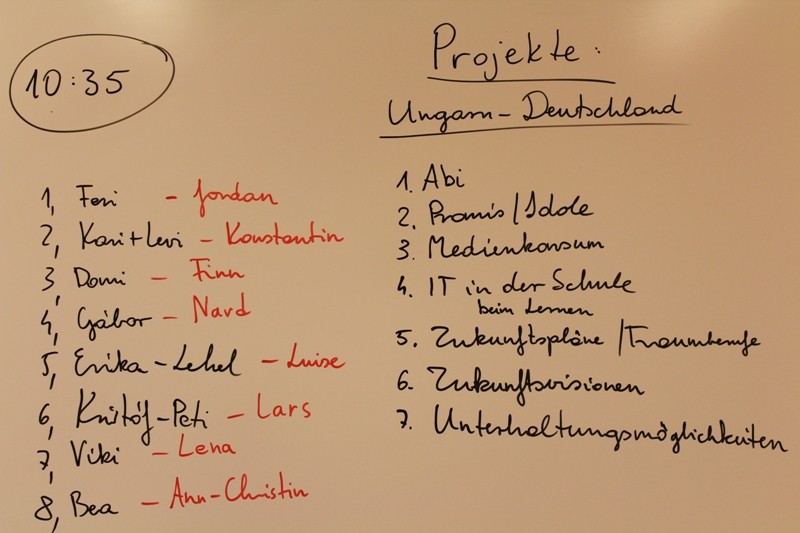 10:35
Projekte:
Ungarn - Deutschland
1, Feri - Jordan
2, Kari+Levi - Konstantin
3, Domi - Finn
4, Gábor - Nard
5, Erika-Lehel - Luise
6, Kristóf-Peti - Lars
7, Viki - Lena
8, Bea - Ann-Christin
1. Abi
2. Promis/Idole
3. Medienkonsum
4. IT in der Schule
beim Lernen
5. Zukunftspläne/Traumberufe
6. Zukunftsvisionen
7. Unterhaltungsmöglichkeiten